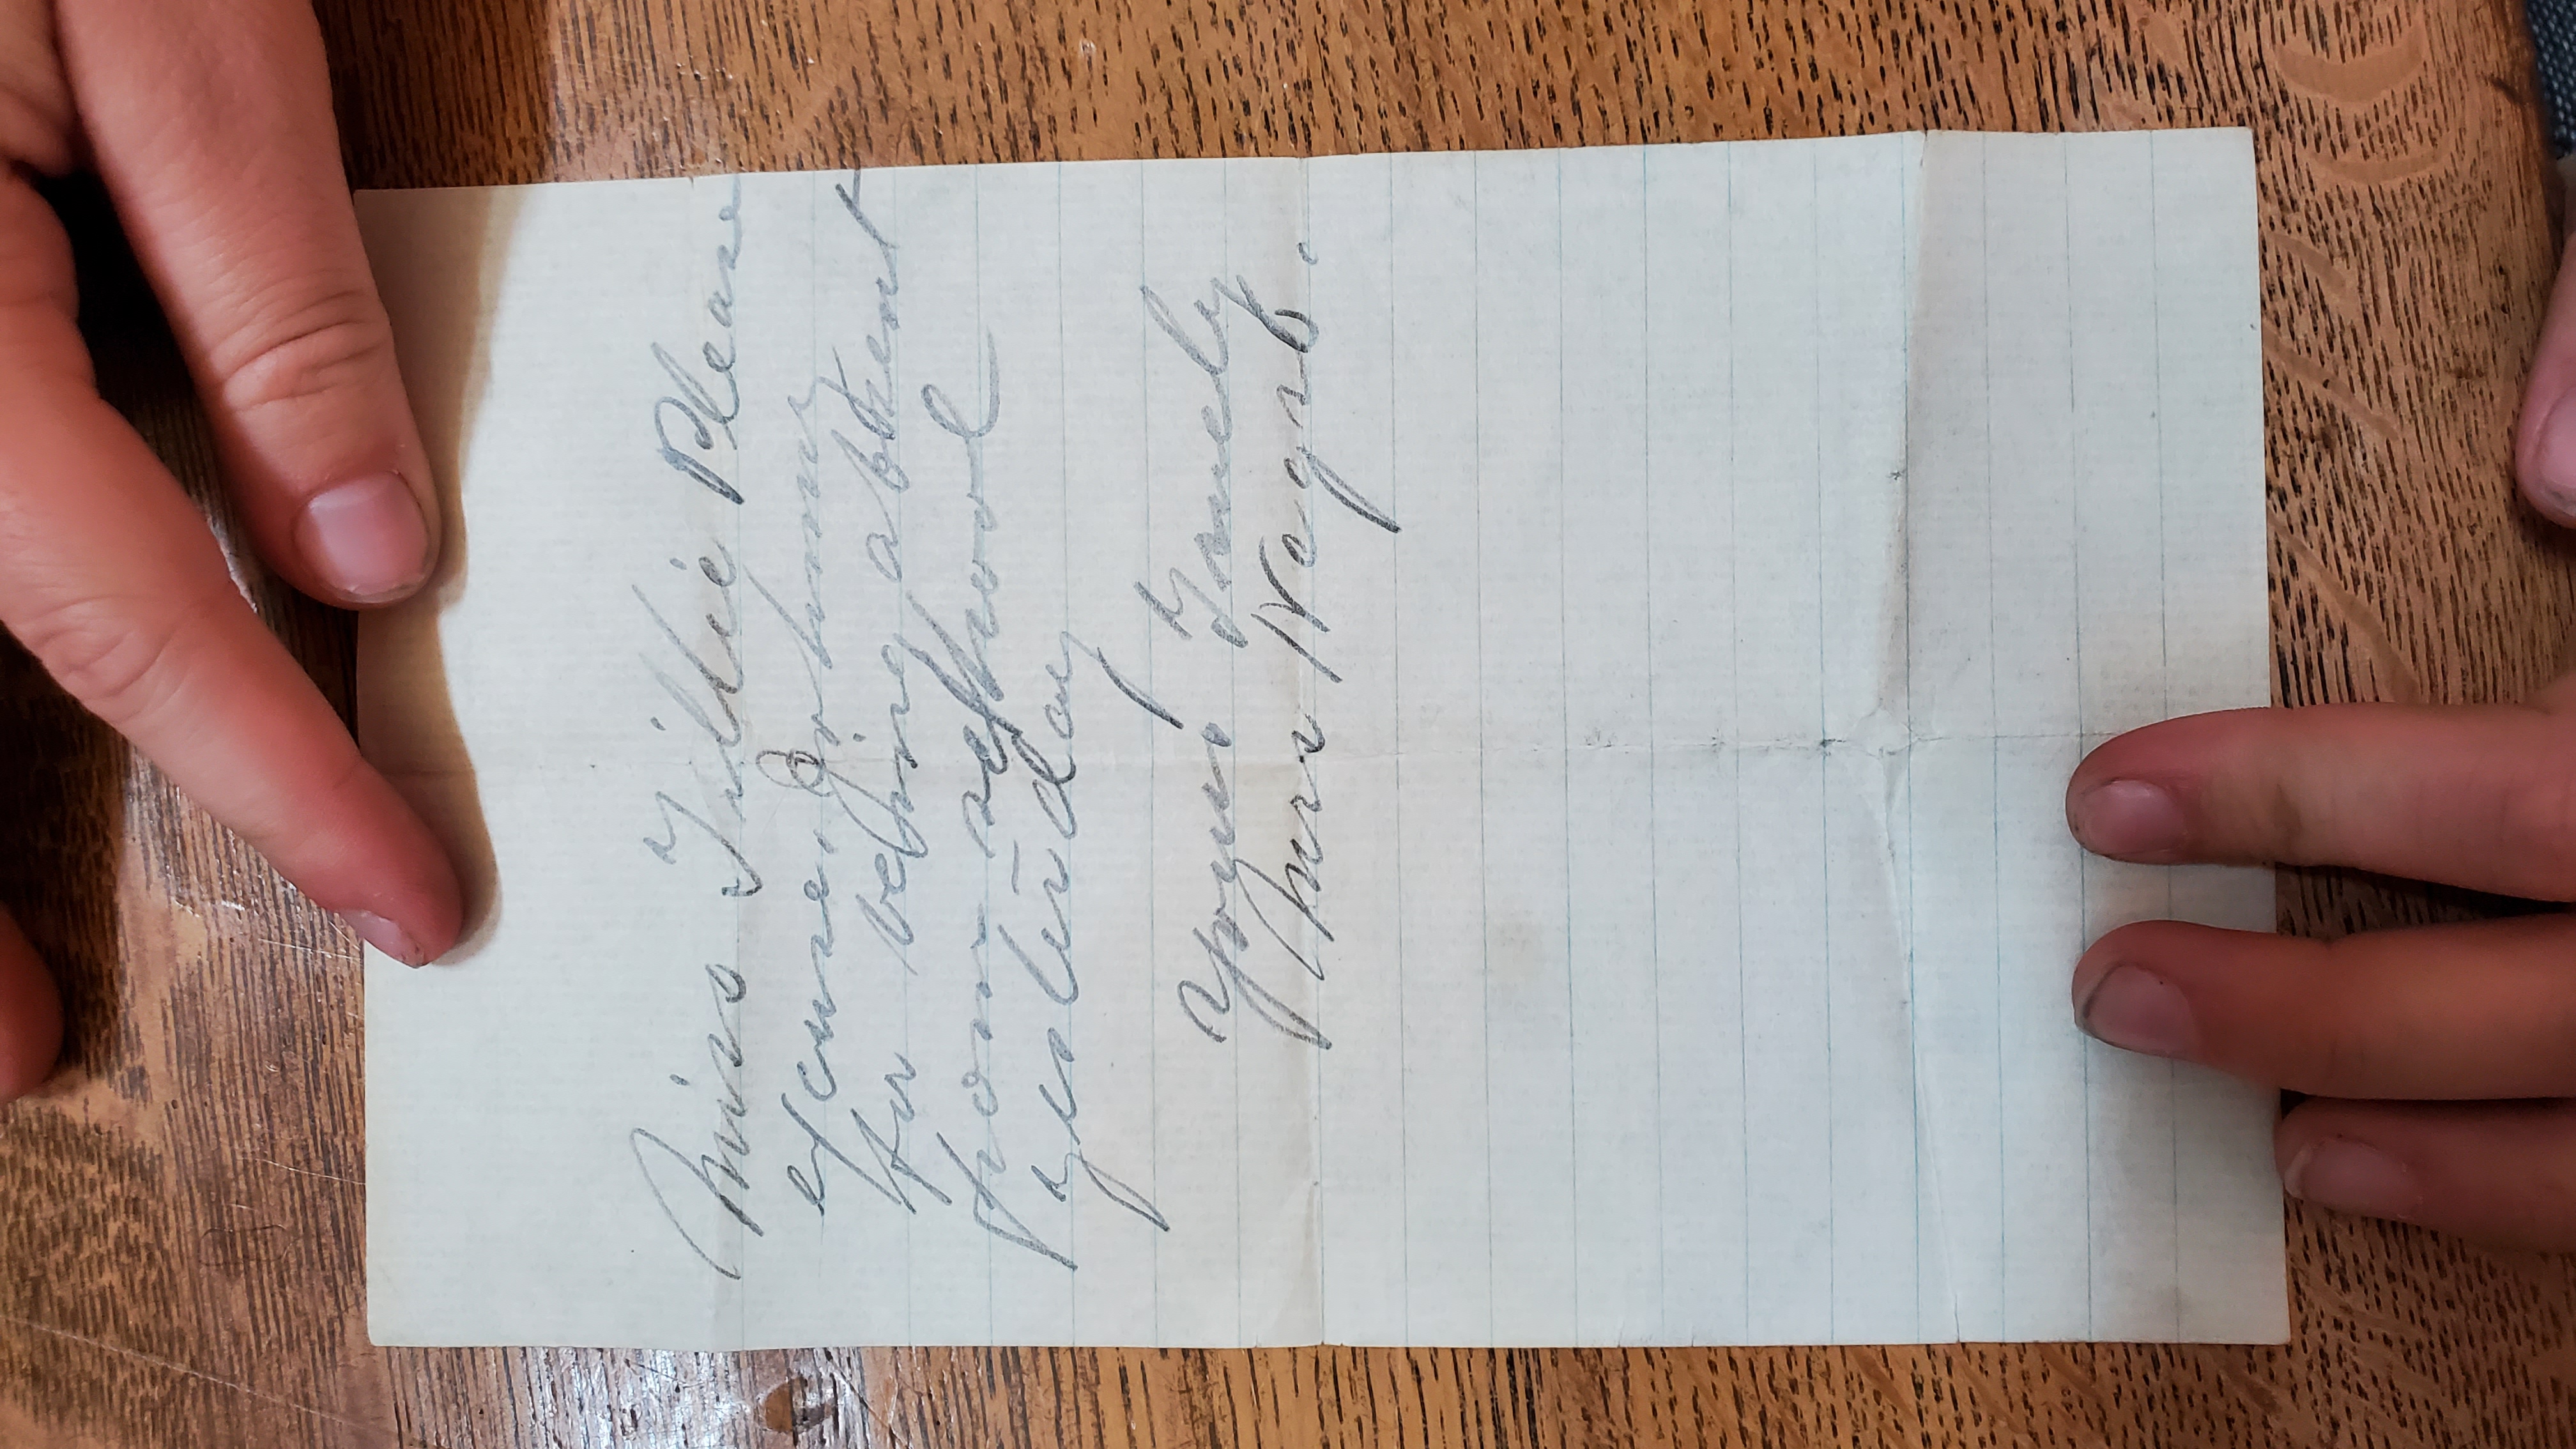 Miss Tillie Please
excuse. Johnny
for being absent
from school
yesterday
Yours Truely
Mrs Negro.